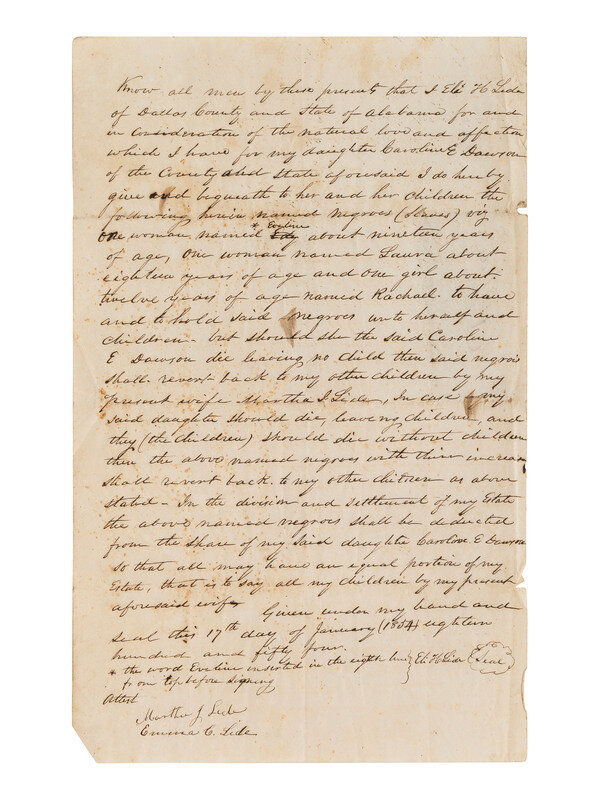 Know all men by these presents that I Eli H Lide
of Dallas County and State of Alabama for and
in Consideration of the natural love and affection
which I have for my daughter Caroline E Dawson
of the County and State aforesaid I do hereby
give and bequeath to her and her children the
following herein named negroes (Slaves) viz
One woman named * Eveline about nineteen years
of age, One woman named Laura about
eighteen years of age and One girl about
twelve years of age named Rachael. to have
and to hold said negroes unto herself and
children - but should she the said Caroline
E Dawson die leaving no child then said negroes
shall revert back to my other children by my
present wife Martha J Lide, In case my
said daughter should die, leaving children, and
they (the children) should die without children
then the above named negroes with their increase
shall revert back to my other children as above
stated - In the division and settlement of my Estate
the above named negroes shall be deducted
from the share of my said daughter Caroline E Dawson
so that all may have an equal portion of my
Estate, that is to say all my children by my present
aforesaid wife Given under my hand and
seal this 17th day of January (1854) eighteen
hundred and fifty four.
* the word Eveline inserted in the eighth line } Eli H Lide Seal
from top before signing
Attest
Martha J Lide
Emma C. Lide